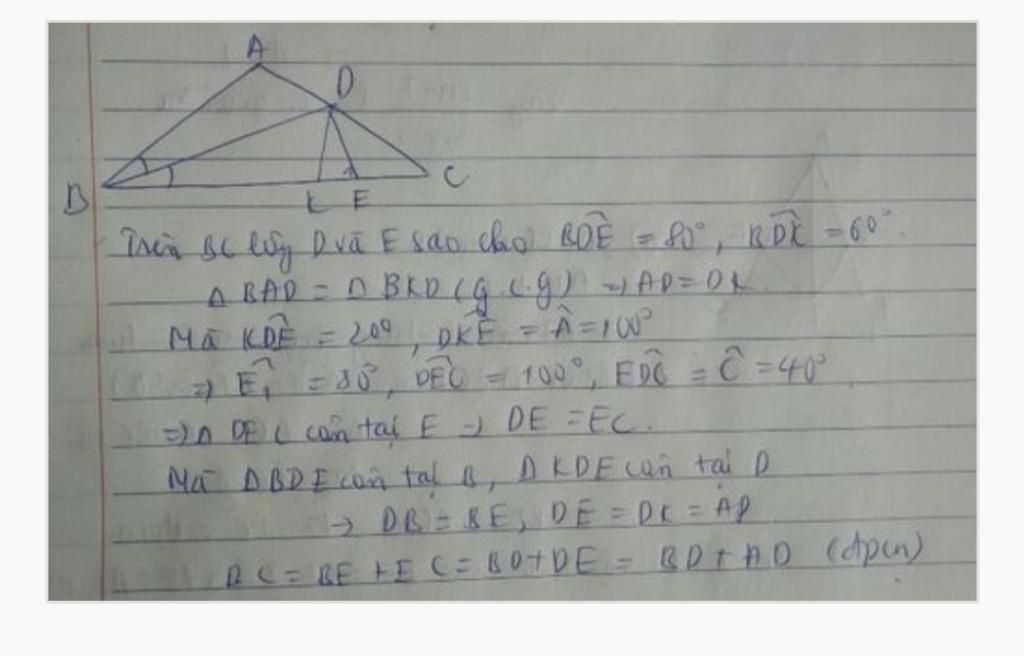 A
D
B
K E
C
Trên BC lấy D và E sao cho BDÊ = 80°, BDK̂ = 60°.
Δ BAD = Δ BKD (g.c.g) ⇒ AD = DK
Mà KDÊ = 20°, DKÊ = Â = 100°
⇒ Ê₁ = 80°, DEĈ = 100°, EDĈ = Ĉ = 40°
⇒ Δ DEC cân tại E ⇒ DE = EC.
Mà ΔBDE cân tại B, Δ KDE cân tại D
→ DB = BE, DE = DK = AD
BC = BE + EC = BD + DE = BD + AD (đpcm)